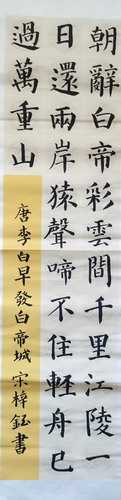 朝辭白帝彩雲間千里江陵一
日還兩岸猿聲啼不住輕舟已
過萬重山
唐李白早發白帝城 宋梓鈺書